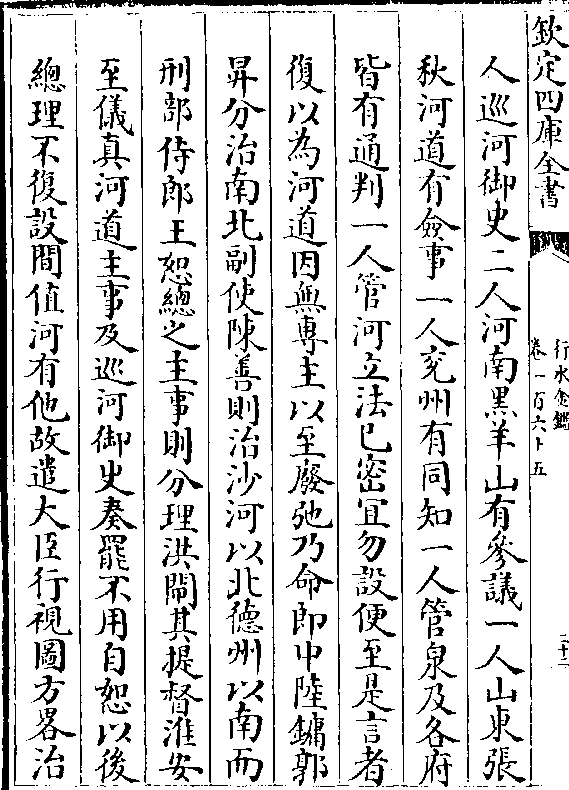 欽定四庫全書
行水金鑑
卷一百六十五
人巡河御史二人河南黑羊山有參議一人山東張
秋河道有僉事一人兖州有同知一人管泉及各府
皆有通判一人管河立法已密宜勿設便至是言者
復以為河道因無專主以至廢弛乃命郎中陸鏞郭
昇分治南北副使陳善則治沙河以北德州以南而
刑部侍郎王恕總之主事則分理洪閘其提督淮安
至儀真河道主事及巡河御史奏罷不用自恕以後
總理不復設間值河有他故遣大臣行視圖方畧治